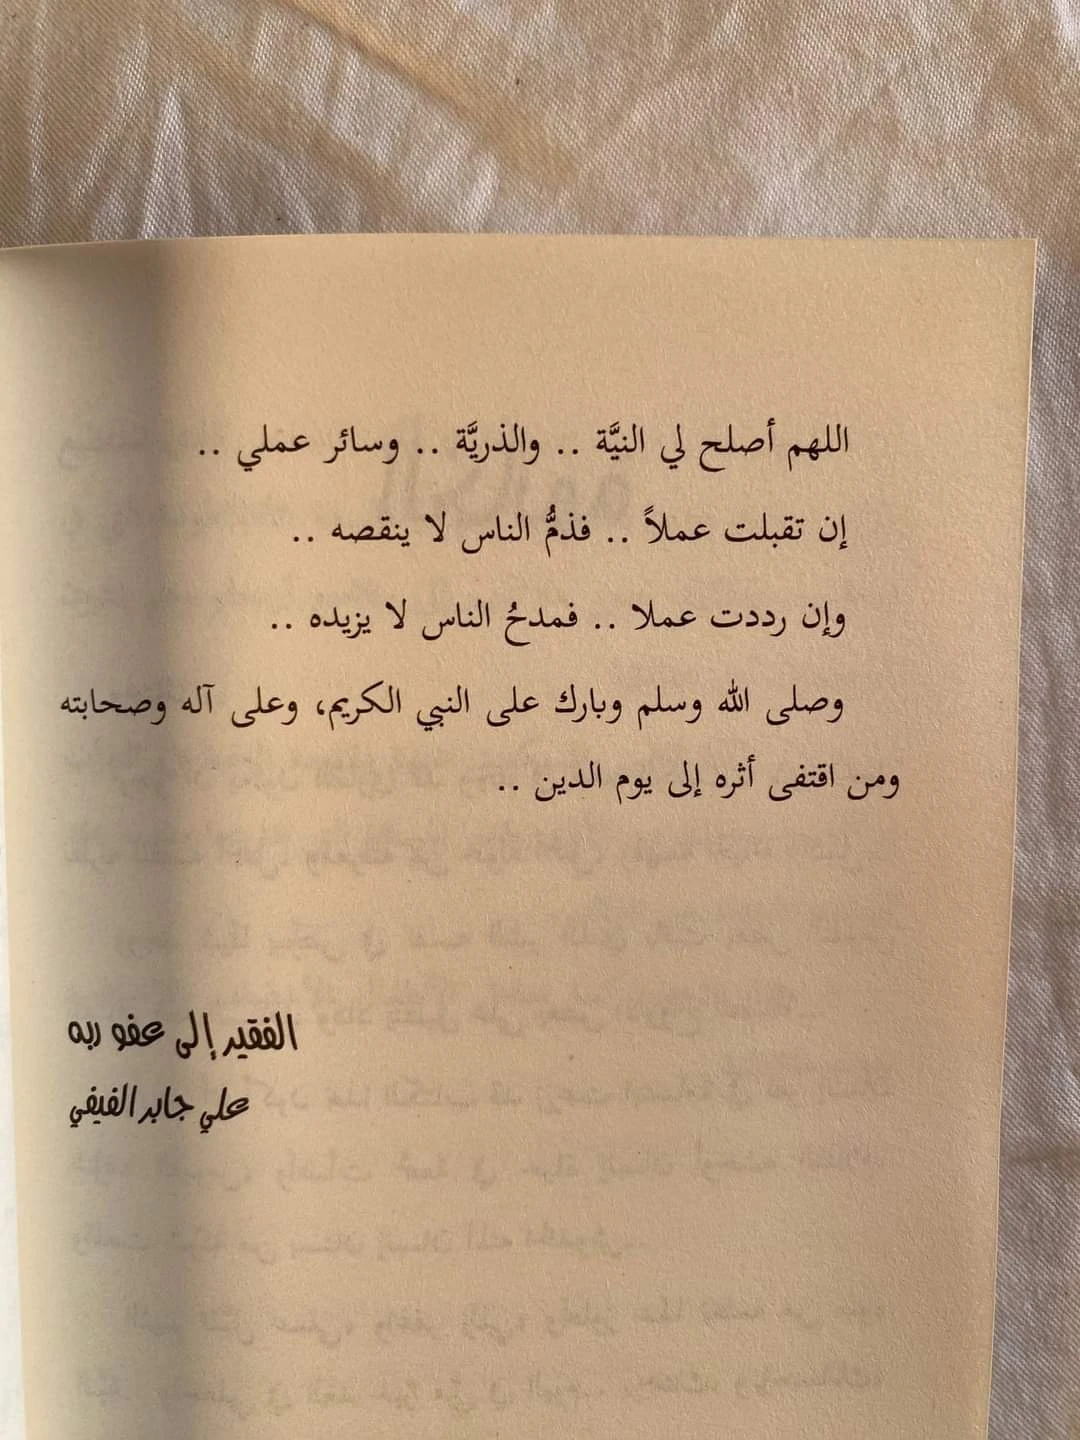 اللهم أصلح لي النيَّة .. والذريَّة .. وسائر عملي ..
إن تقبلت عملاً .. فذمُّ الناس لا ينقصه ..
وإن رددت عملا .. فمدحُ الناس لا يزيده ..
وصلى الله وسلم وبارك على النبي الكريم، وعلى آله وصحابته
ومن اقتفى أثره إلى يوم الدين ..
الفقير إلى عفو ربه
علي جابر الفيفي